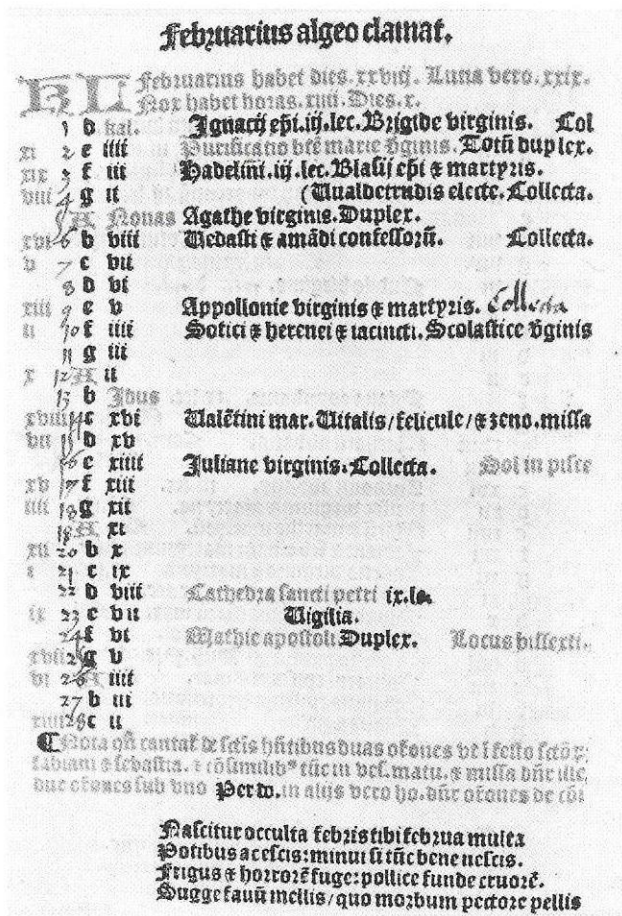 Februarius algeo clamat.
KL Februarius habet dies.xxviij. Luna vero.xxix.
Nox habet horas.xiiii.Dies.x.
1 d kal. Ignacij ep̄i.iij.lec.Brigide virginis. Col
xi 2 e iiii Purificatio bt̄e marie v̄ginis.Totū duplex.
xix 3 f iii Hadelini.iij.lec.Blasij ep̄i ⁊ martyris.
viii 4 g ii (Uualdetrudis electe.Collecta.
A Nonas Agathe virginis.Duplex.
xvi 6 b viii Vedasti ⁊ amādi confessorū. Collecta.
v 7 c vii
8 d vi
xiii 9 e v Appollonie virginis ⁊ martyris. Collecta
ii 10 f iiii Sotici ⁊ herenei ⁊ iacincti.Scolastice v̄ginis
11 g iii
x 12 A ii
13 b Idus
xviii 14 c xvi Ualētini mar.Uitalis/felicule/⁊ zeno.missa
vii 15 d xv
16 e xiiii Juliane virginis.Collecta. Sol in pisce
xv 17 f xiii
iiii 18 g xii
19 A xi
xii 20 b x
i 21 c ix
22 d viii Cathedra sancti petri ix.le.
ix 23 e vii Uigilia.
24 f vi Mathie apostoli Duplex. Locus bissexti.
xvii 25 g v
vi 26 A iiii
27 b iii
xiiii 28 c ii
Nota cantat̄ de sc̄tis duas or̄ones
fabiani ⁊ sebastia. ⁊ cōsimilib⁹ tūc in ves. matu. ⁊ missa
due or̄ones sub uno Per do. in alijs vero ho. or̄ones de
Nascitur occulta febris tibi februa multa
Potibus ac escis:minui si tūc bene nescis.
Frigus ⁊ horrorē fuge:pollice funde cruorē.
Sugge fauū mellis/quo morbum pectore pellis